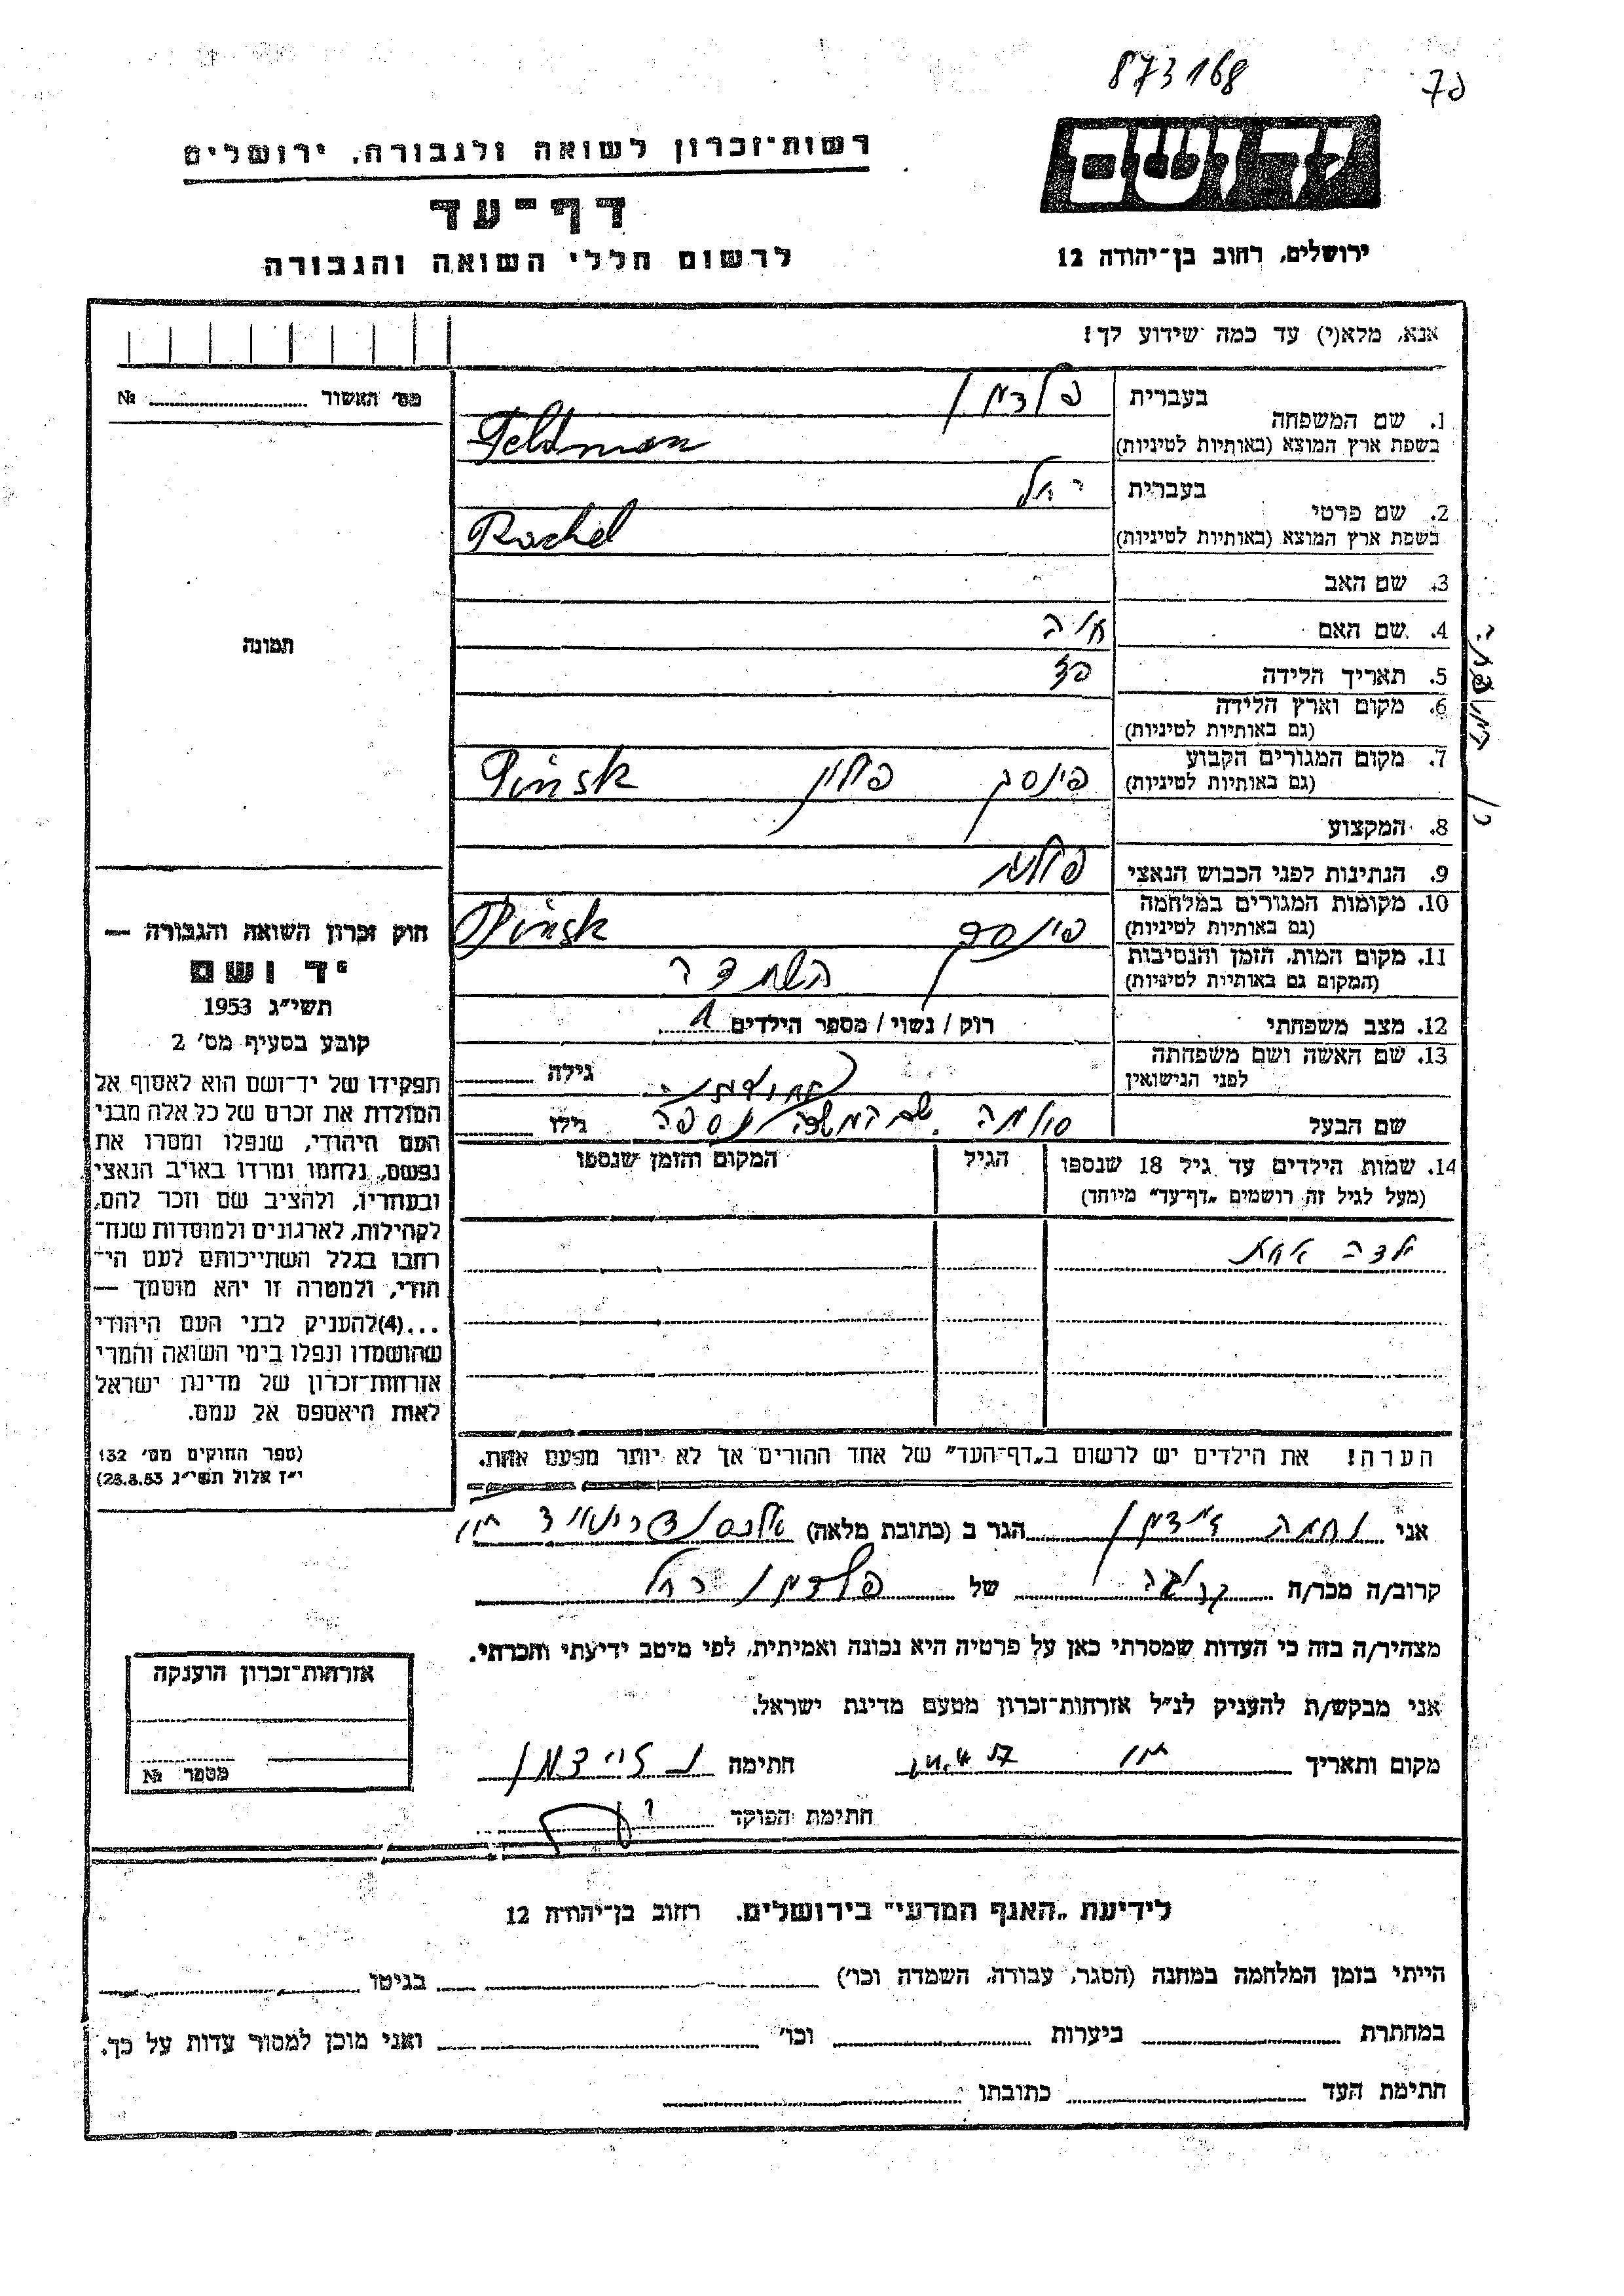 873168
יד ושם
רשות־זכרון לשואה ולגבורה, ירושלים
דף־עד
לרשום חללי השואה והגבורה
ירושלים, רחוב בן־יהודה 12
אנא, מלא(י) עד כמה שידוע לך!
מס׳ האשור № 
1. שם המשפחה בעברית פלדמן
בשפת ארץ המוצא (באותיות לטיניות) Feldman
2. שם פרטי בעברית רחל
בשפת ארץ המוצא (באותיות לטיניות) Rachel
3. שם האב
4. שם האם
5. תאריך הלידה
6. מקום וארץ הלידה
(גם באותיות לטיניות)
7. מקום המגורים הקבוע פינסק פולין Pinsk
(גם באותיות לטיניות)
8. המקצוע
9. הנתינות לפני הכבוש הנאצי פולנית
10. מקומות המגורים במלחמה פינסק Pinsk
(גם באותיות לטיניות)
11. מקום המות, הזמן והנסיבות
(המקום גם באותיות לטיניות)
12. מצב משפחתי רוק / נשוי / מספר הילדים 1
13. שם האשה ושם משפחתה גילה
לפני הנישואין
שם הבעל גילו
14. שמות הילדים עד גיל 18 שנספו הגיל המקום והזמן שנספו
(מעל לגיל זה רושמים „דף־עד״ מיוחד)
ילדה אחת
הערה! את הילדים יש לרשום ב„דף־העד״ של אחד ההורים אך לא יותר מפעם אחת.
תמונה
חוק זכרון השואה והגבורה —
יד ושם
תשי״ג 1953
קובע בסעיף מס׳ 2
תפקידו של יד־ושם הוא לאסוף אל
המולדת את זכרם של כל אלה מבני
העם היהודי, שנפלו ומסרו את
נפשם, נלחמו ומרדו באויב הנאצי
ובעוזריו, ולהציב שם וזכר להם,
לקהילות, לארגונים ולמוסדות שנח־
רחבו בגלל השתייכותם לעם הי־
הודי, ולמטרה זו יהא מוסמך —
...(4)להעניק לבני העם היהודי
שהושמדו ונפלו בימי השואה והמרי
אזרחות־זכרון של מדינת ישראל
לאות היאספם אל עמם.
(ספר החוקים מס׳ 132
י״ז אלול תשי״ג 28.8.53)
אני נחמה זיידמן הגר ב (כתובת מלאה)
קרוב/ה מכר/ה של פלדמן רחל
מצהיר/ה בזה כי העדות שמסרתי כאן על פרטיה היא נכונה ואמיתית, לפי מיטב ידיעתי והכרתי.
אני מבקש/ת להעניק לנ״ל אזרחות־זכרון מטעם מדינת ישראל.
מקום ותאריך חתימה נ. זיידמן
חתימת הפוקד
אזרחות־זכרון הוענקה
מספר №
לידיעת „האגף המדעי״ בירושלים. רחוב בן־יהודה 12
הייתי בזמן המלחמה במחנה (הסגר, עבודה, השמדה וכו׳) בגיטו
במחתרת ביערות וכו׳ ואני מוכן למסור עדות על כך.
חתימת העד כתובתו